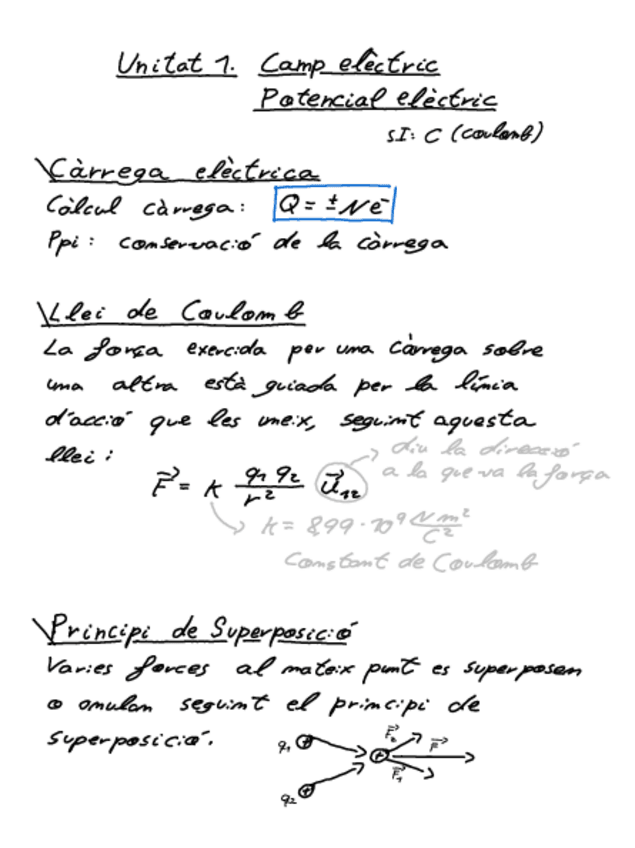 Unitat 1. Camp elèctric
Potencial elèctric
SI: C (coulomb)
Càrrega elèctrica
Càlcul càrrega: Q = ± N e⁻
Ppi: conservació de la càrrega
Llei de Coulomb
La força exercida per una càrrega sobre
una altra està guiada per la línia
d'acció que les uneix, seguint aquesta
llei:
diu la direcció
a la que va la força
F⃗ = K q₁ q₂ / r² u⃗₁₂
K = 8,99 · 10⁹ N m² / C²
Constant de Coulomb
Principi de Superposició
Varies forces al mateix punt es superposen
o anulan seguint el principi de
superposició.
q₁ + + F⃗₂ F⃗
F⃗₁
q₂ +